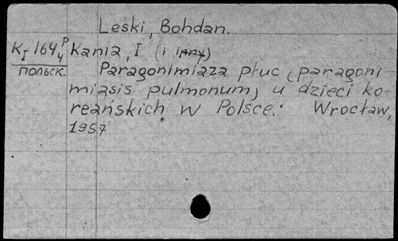 Leski, Bohdan.
K I 164 P 4 Kania, I (i inny)
польск. Paragonimiaza płuc (paragoni-
miasis pulmonum) u dzieci ko-
reańskich w Polsce. Wrocław,
1957